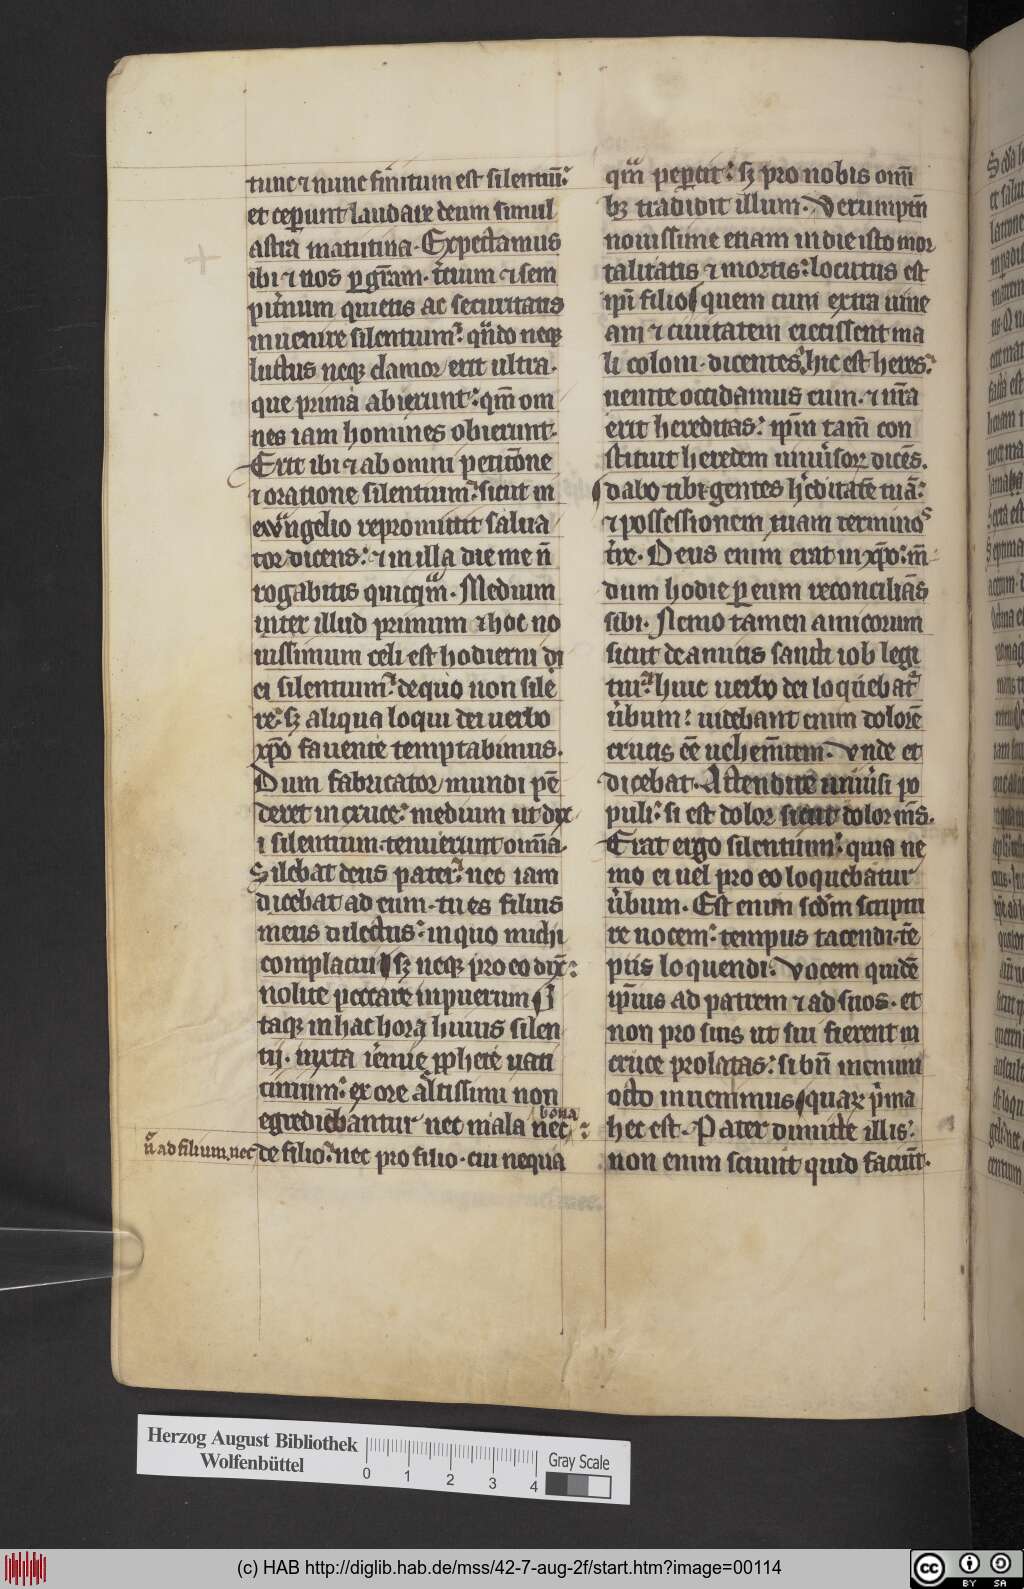 tunc ⁊ nunc finitum est silentiū:
et ceperunt laudare deum simul
astra matutina. Expectamus
ibi ⁊ nos ꝑ grām. tcium ⁊ sem
pitnum quietis ac securitatis
inuenire silentium: qn̄do neqꝫ
luctus neqꝫ clamor erit ultra.
que prima abierunt: qm̄ om
nes iam homines obierunt.
Erit ibi ⁊ ab omni peticōne
⁊ oratione silentium: sicut in
ewangelio repromittit salua
tor dicens: ⁊ in illa die me n̄
rogabitis quicqm̄. Medium
inter illud primum ⁊ hoc no
uissimum celi est hodierni di
ei silentium: de quo non sile
re: sꝫ aliqua loqui dei uerbo
xp̄o fauente temptabimus.
Dum fabricator mundi pē
deret in cruce: medium ut dix
i silentium tenuerunt omīa.
Silebat deus pater: nec iam
dicebat ad eum. tu es filius
meus dilectus: in quo michi
complacui sꝫ neqꝫ pro eo dix̄:
nolite peccare in puerum I
taqꝫ in hac hora huius silen
tij. iuxta iemie ꝓphete uati
cinium: ex ore altissimi non
egrediebantur nec mala nec bona:
n̄ ad filium, nec de filio: nec pro filio. cui nequa
qm̄ peꝑcit: sꝫ pro nobis omī
bꝫ tradidit illum. Verumptn̄
nouissime etiam in die isto mor
talitatis ⁊ mortis: locutus est
ipī filio quem cum extra uine
am ⁊ ciuitatem eiecissent ma
li coloni. dicentes: hic est heres:
uenite occidamus eum. ⁊ nr̄a
erit hereditas: ipm̄ tam̄ con
stituit heredem uniusor dicēs.
dabo tibi gentes hereditatē tuā:
⁊ possessionem tuam terminos
tre. Deus enim erat in xp̄o: m̄
dum hodie ꝑ eum reconciliās
sibi. Nemo tamen amicorum
sicut de amicis sancti iob legi
tur: huic uerbo dei loquebatr
ubum: uidebant enim dolorē
crucis eē uehemtem. Vnde et
dicebat. Attendite uniusi po
puli: si est dolor sicut dolor ms.
Erat ergo silentium: quia ne
mo ei uel pro eo loquebatur
ubum. Est enim scdm scriptu
re uocem: tempus tacendi. tē
pus loquendi. Vocem quidē
ipīus ad patrem ⁊ ad suos. et
non pro suis ut sui fierent in
cruce prolatas: si bn̄ memini
octo inuenimus quarꝫ pima
hec est. Pater dimitte illis:
non enim sciunt quid faciūt.
Herzog August Bibliothek
Wolfenbüttel
0 1 2 3 4
Gray Scale
(c) HAB http://diglib.hab.de/mss/42-7-aug-2f/start.htm?image=00114
cc BY SA